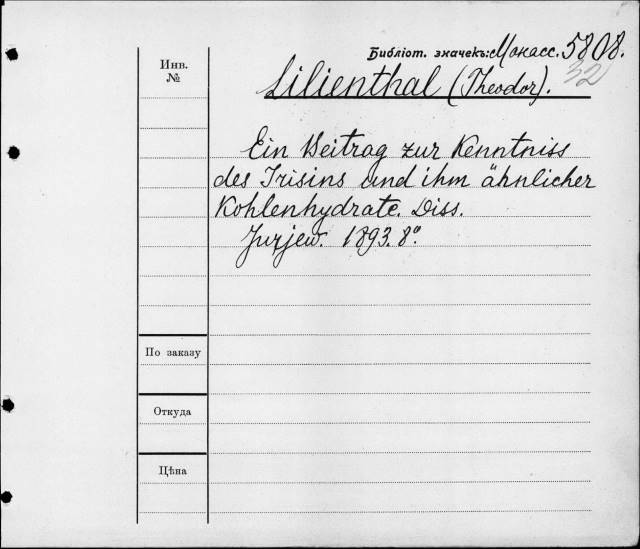 Библіот. значекъ: Мокасс. 5808.
32
Инв. №
Lilienthal (Theodor).
Ein Beitrag zur Kenntniss
des Irisins und ihm ähnlicher
Kohlenhydrate. Diss.
Jurjew. 1893. 8°.
По заказу
Откуда
Цѣна